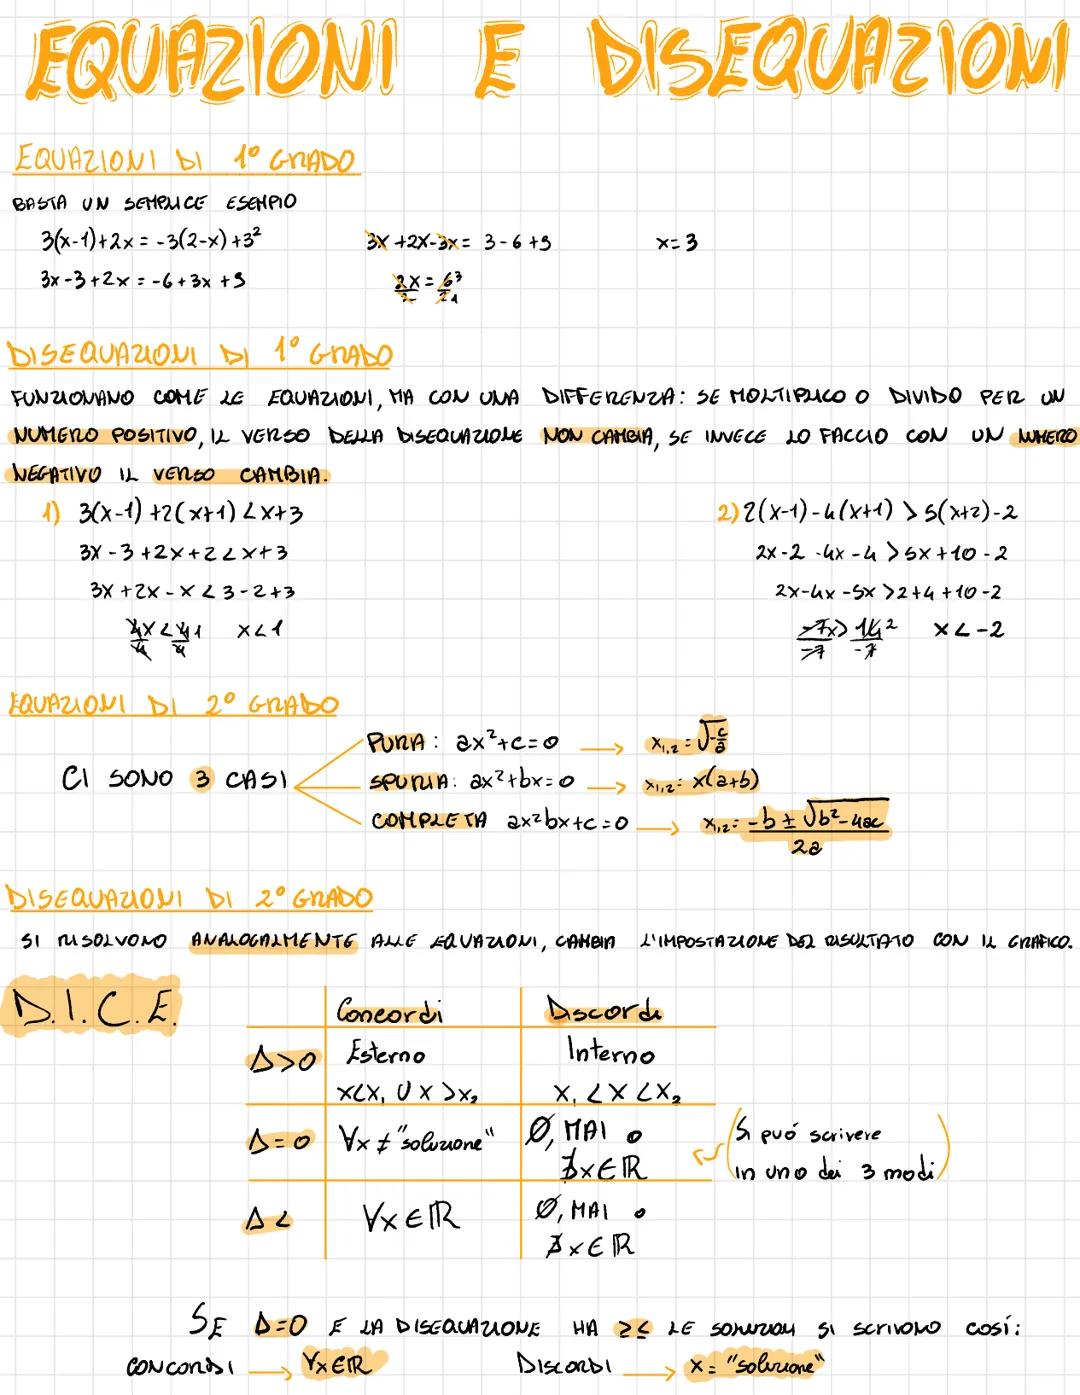 EQUAZIONI E DISEQUAZIONI
EQUAZIONI DI 1° GRADO
BASTA UN SEMPLICE ESEMPIO
3(x-1)+2x = -3(2-x)+3² 3x+2x-3x = 3-6+9 x=3
3x-3+2x = -6+3x+9 2x/2 = 6³/2 1
DISEQUAZIONI DI 1° GRADO
FUNZIONANO COME LE EQUAZIONI, MA CON UNA DIFFERENZA: SE MOLTIPLICO O DIVIDO PER UN
NUMERO POSITIVO, IL VERSO DELLA DISEQUAZIONE NON CAMBIA, SE INVECE LO FACCIO CON UN NUMERO
NEGATIVO IL VERSO CAMBIA.
1) 3(x-1)+2(x+1) < x+3 2) 2(x-1)-4(x+1) > 5(x+2)-2
3x-3+2x+2 < x+3 2x-2-4x-4 > 5x+10-2
3x+2x-x < 3-2+3 2x-4x-5x > 2+4+10-2
4x/4 < 4/4 1 x<1 -7x/-7 > 14²/-7 x<-2
EQUAZIONI DI 2° GRADO
PURA: ax²+c=0 → x₁,₂ = √-c/a
CI SONO 3 CASI SPURIA: ax²+bx=0 → x₁,₂ = x(a+b)
COMPLETA ax²bx+c=0 → x₁,₂ = -b±√b²-4ac / 2a
DISEQUAZIONI DI 2° GRADO
SI RISOLVONO ANALOGALMENTE ALLE EQUAZIONI, CAMBIA L'IMPOSTAZIONE DEL RISULTATO CON IL GRAFICO.
D.I.C.E. Concordi Discordi
Δ>0 Esterno Interno
x<x₁ U x>x₂ x₁<x<x₂
Δ=0 ∀x≠"soluzione" Ø, MAI o
∄x∈ℝ
Si può scrivere
in uno dei 3 modi
Δ< ∀x∈ℝ Ø, MAI o
∄x∈ℝ
SE Δ=0 E LA DISEQUAZIONE HA ≥≤ LE SOLUZIONI SI SCRIVONO COSÍ:
CONCORDI → ∀x∈ℝ DISCORDI → x = "soluzione"